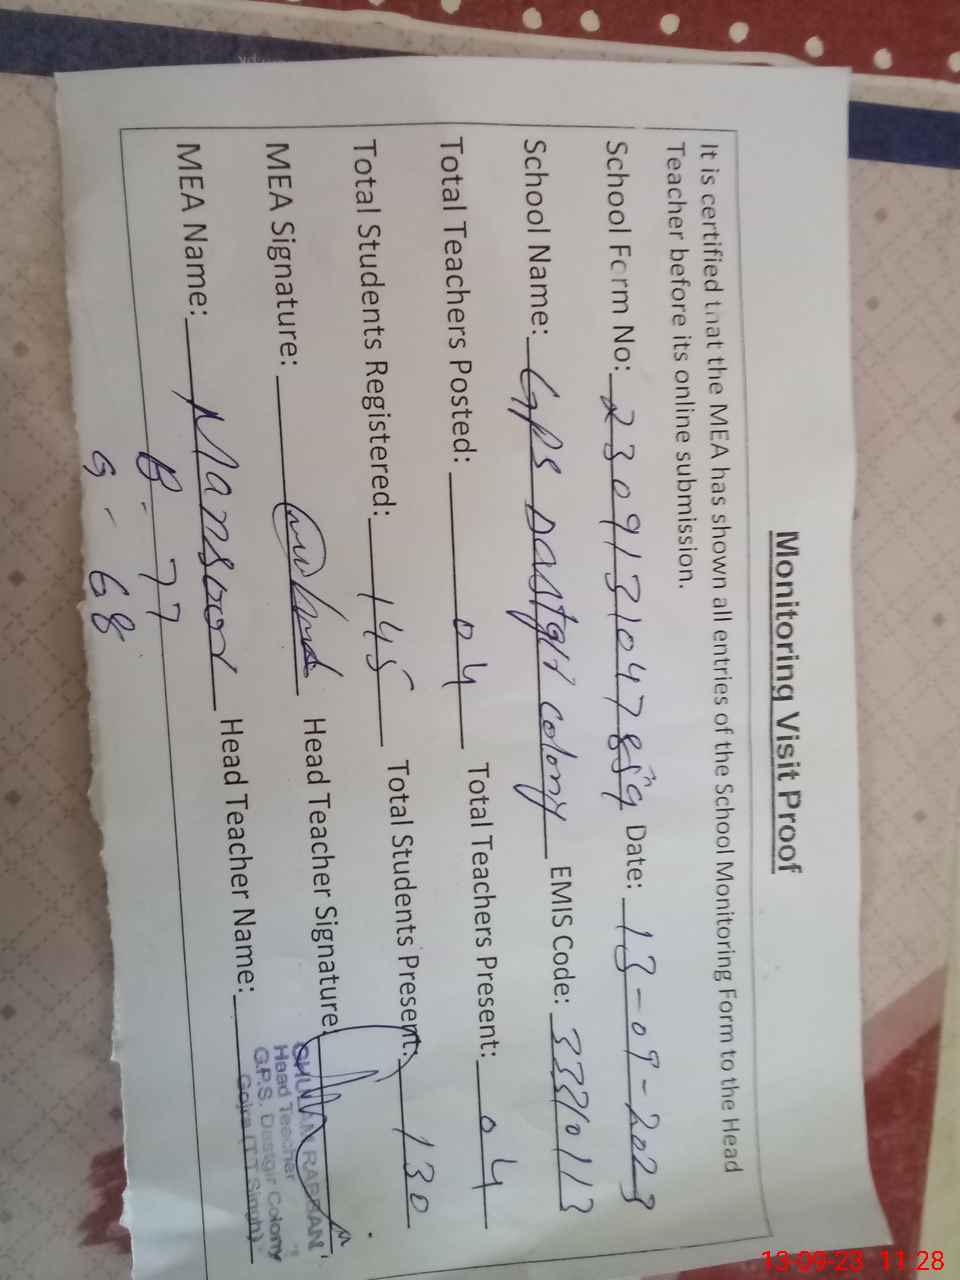 Monitoring Visit Proof
It is certified that the MEA has shown all entries of the School Monitoring Form to the Head
Teacher before its online submission.
School Form No: 2309131047859 Date: 13-09-2023
School Name: GPS Dastgir colony EMIS Code: 33210113
Total Teachers Posted: 04 Total Teachers Present: 04
Total Students Registered: 145 Total Students Present: 130
MEA Signature: Head Teacher Signature:
MEA Name: Mansoor Head Teacher Name:
Head Teacher
G.P.S. Dastgir Colony
Gojra (T.T Singh)
B - 77
G - 68
13-09-23 11:28